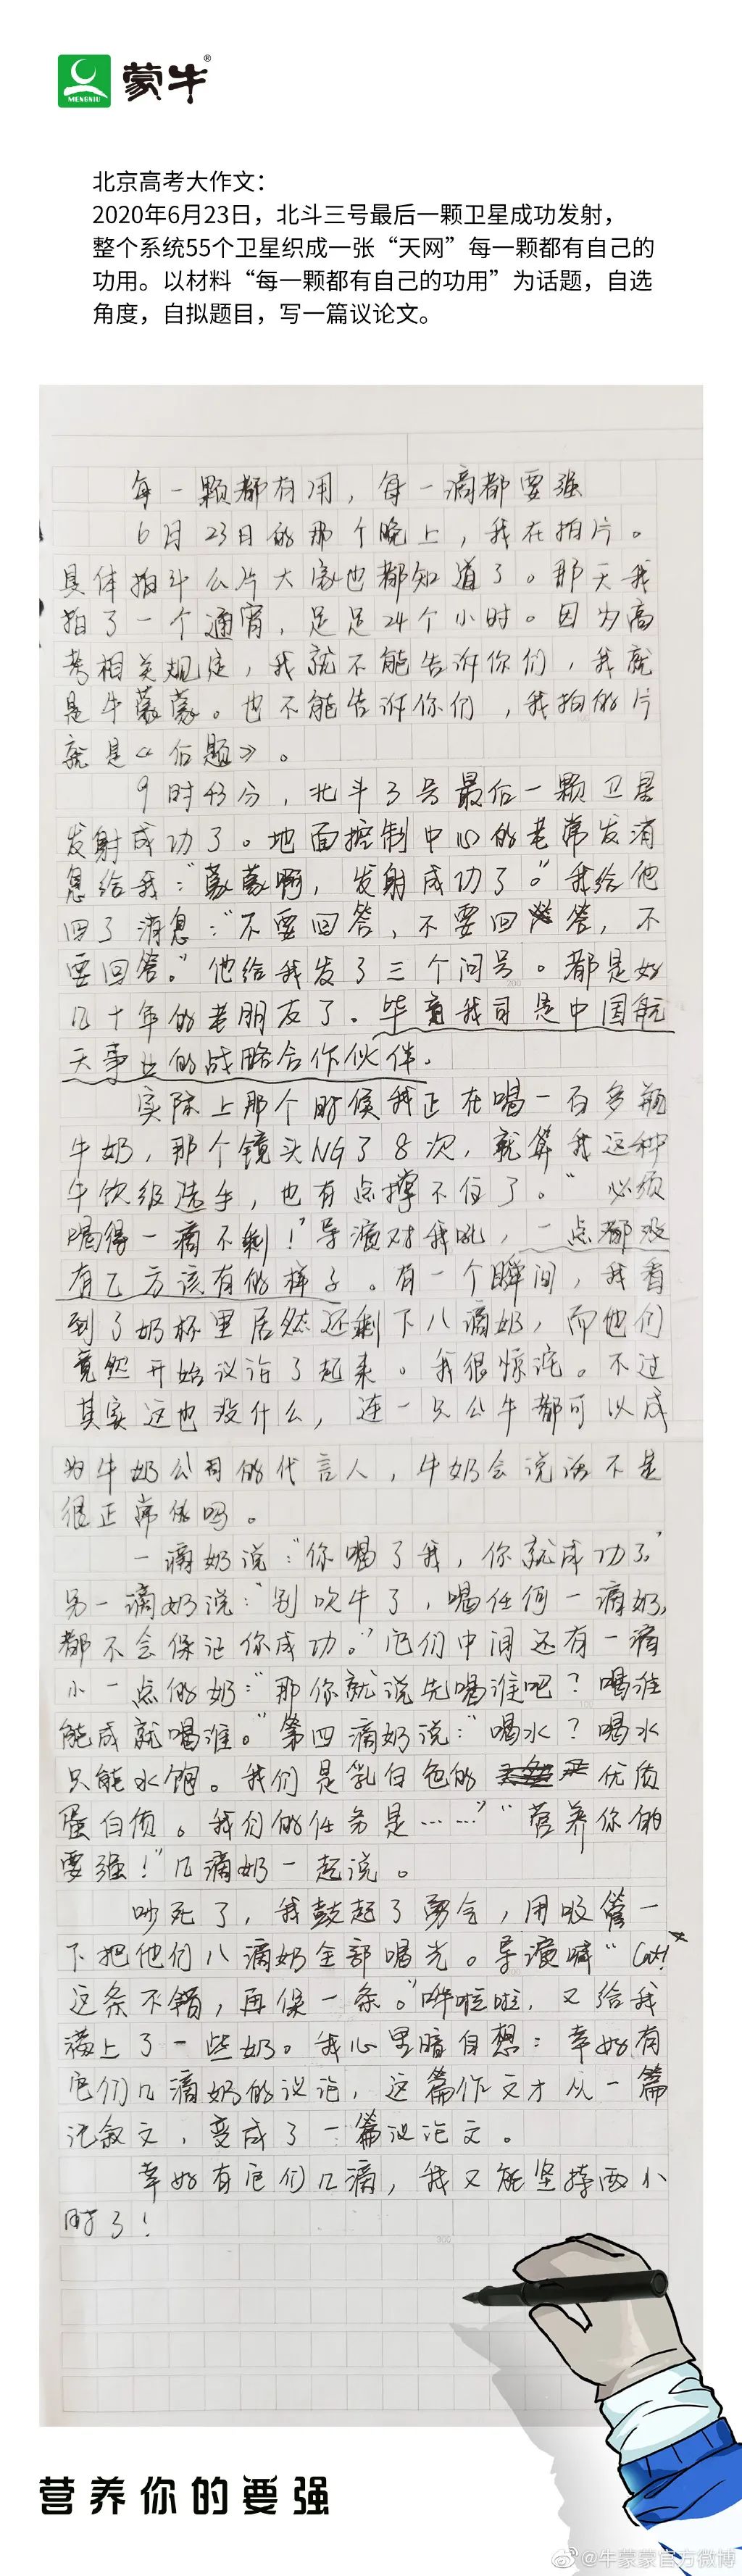 蒙牛®
MENGNIU
北京高考大作文：
2020年6月23日，北斗三号最后一颗卫星成功发射，
整个系统55个卫星织成一张“天网”每一颗都有自己的
功用。以材料“每一颗都有自己的功用”为话题，自选
角度，自拟题目，写一篇议论文。
每一颗都有用，每一滴都要强
6月23日的那个晚上，我在拍片。
具体拍什么片大家也都知道了。那天我
拍了一个通宵，足足24个小时。因为高
考相关规定，我就不能告诉你们，我就
是牛蒙蒙。也不能告诉你们，我拍的片
就是《后题》。
9时43分，北斗3号最后一颗卫星
发射成功了。地面控制中心的老常发消
息给我：“蒙蒙啊，发射成功了。”我给他
回了消息：“不要回答，不要回答，不
要回答。”他给我发了三个问号。都是好
几十年的老朋友了。毕竟我司是中国航
天事业的战略合作伙伴。
实际上那个时候我正在喝一百多瓶
牛奶，那个镜头NG了8次，就算我这种
牛饮级选手，也有点撑不住了。“必须
喝得一滴不剩！”导演对我吼，一点都没
有乙方该有的样子。有一个瞬间，我看
到了奶杯里居然还剩下八滴奶，而他们
竟然开始议论了起来。我很惊诧。不过
其实这也没什么，连一只公牛都可以成
为牛奶公司的代言人，牛奶会说话不是
很正常的吗。
一滴奶说：“你喝了我，你就成功了。”
另一滴奶说：“别吹牛了，喝任何一滴奶，
都不会保证你成功。”它们中间还有一滴
小一点的奶：“那你就说先喝谁吧？喝谁
能成就喝谁。”第四滴奶说：“喝水？喝水
只能水饱。我们是乳白色的优质
蛋白质。我们的任务是……”“营养你的
要强！”几滴奶一起说。
吵死了，我鼓起了勇气，用吸管一
下把他们八滴奶全部喝光。导演喊“Cut！
这条不错，再保一条。”哗啦啦，又给我
满上了一些奶。我心里暗自想：幸好有
它们几滴奶的议论，这篇作文才从一篇
记叙文，变成了一篇议论文。
幸好有它们几滴，我又能坚持两小
时了！
营养你的要强
@牛蒙蒙官方微博